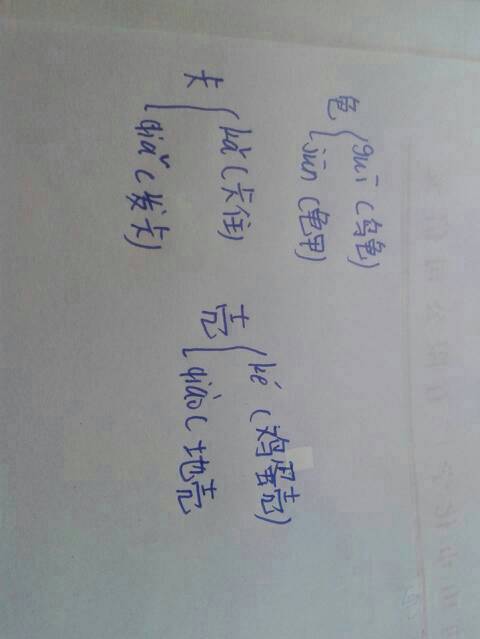 龟 { guī (乌龟)
jūn (龟甲)
卡 { kǎ (卡住)
qiǎ (发卡)
壳 { ké (鸡蛋壳)
qiào (地壳